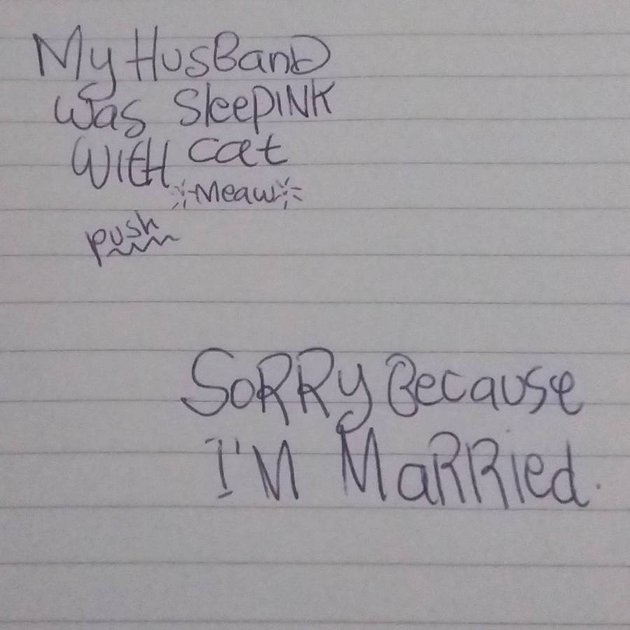 My HusBanD
was SleepINK
WITH cat
Meaw
push
SoRRy Because
I'M MaRRied.